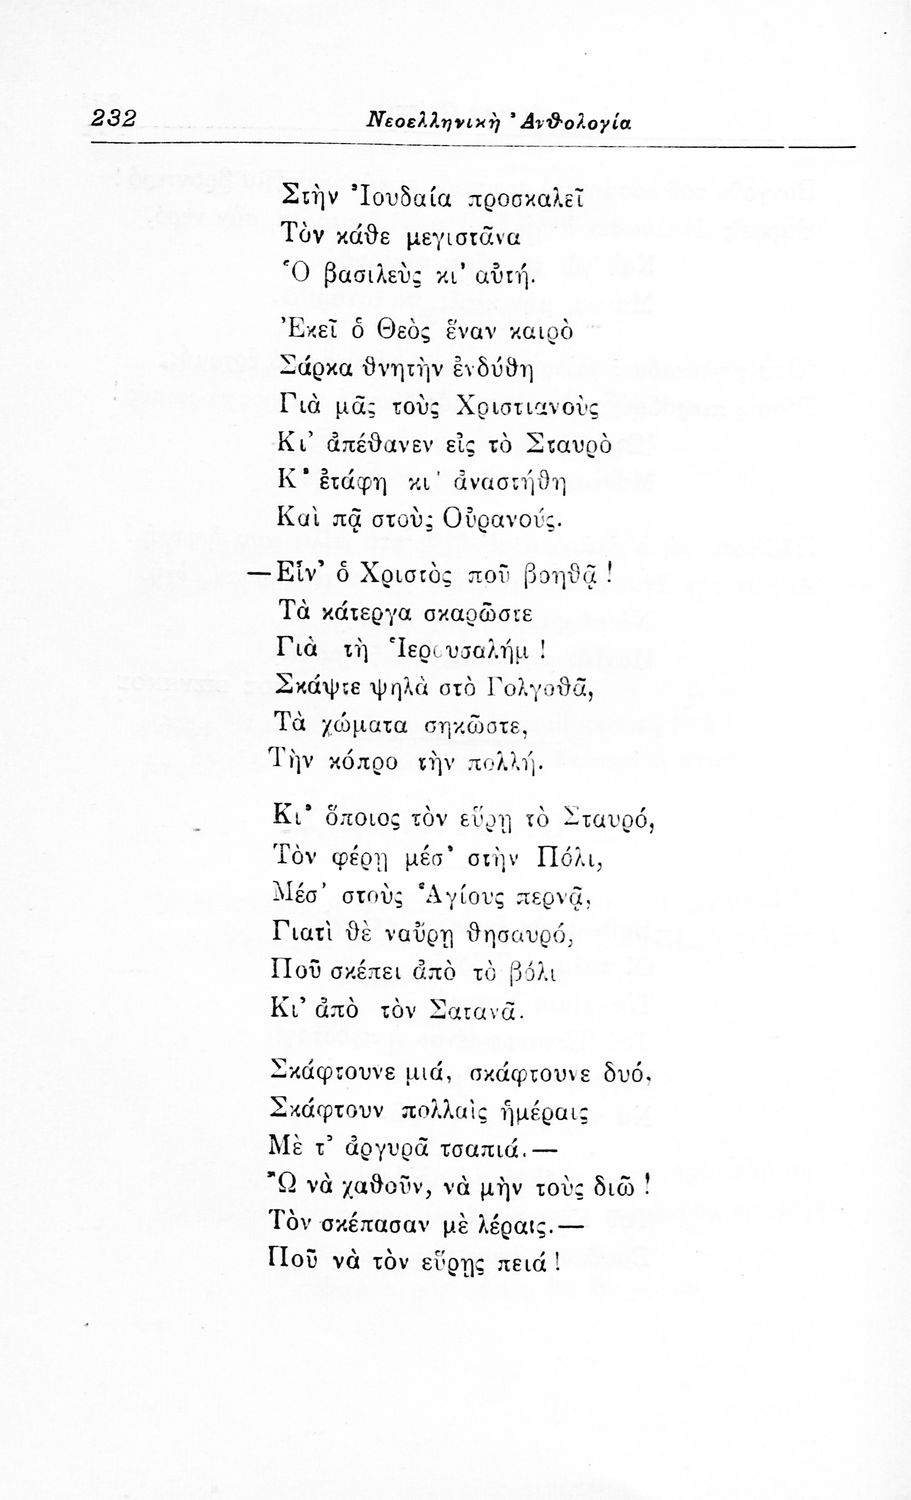 232 Νεοελληνικὴ Ἀνθολογία
Στὴν Ἰουδαία προσκαλεῖ
Τὸν κάθε μεγιστᾶνα
Ὁ βασιλεὺς κι’ αὐτή.
Ἐκεῖ ὁ Θεὸς ἕναν καιρὸ
Σάρκα θνητὴν ἐνδύθη
Γιὰ μᾶς τοὺς Χριστιανοὺς
Κι’ ἀπέθανεν εἰς τὸ Σταυρὸ
Κ’ ἐτάφη κι’ ἀναστήθη
Καὶ πᾷ στοὺς Οὐρανούς.
— Εἶν’ ὁ Χριστὸς ποῦ βοηθᾷ !
Τὰ κάτεργα σκαρῶστε
Γιὰ τὴ Ἱερουσαλήμ !
Σκάψτε ψηλὰ στὸ Γολγοθᾶ,
Τὰ χώματα σηκῶστε,
Τὴν κόπρο τὴν πολλή.
Κι’ ὅποιος τὸν εὕρῃ τὸ Σταυρό,
Τὸν φέρῃ μέσ’ στὴν Πόλι,
Μέσ’ στοὺς Ἁγίους περνᾷ,
Γιατὶ θὲ ναὕρῃ θησαυρό,
Ποῦ σκέπει ἀπὸ τὸ βόλι
Κι’ ἀπὸ τὸν Σατανᾶ.
Σκάφτουνε μιά, σκάφτουνε δυό,
Σκάφτουν πολλαὶς ἡμέραις
Μὲ τ’ ἀργυρᾶ τσαπιά. —
Ὢ νὰ χαθοῦν, νὰ μὴν τοὺς διῶ !
Τὸν σκέπασαν μὲ λέραις. —
Ποῦ νὰ τὸν εὕρῃς πειά !